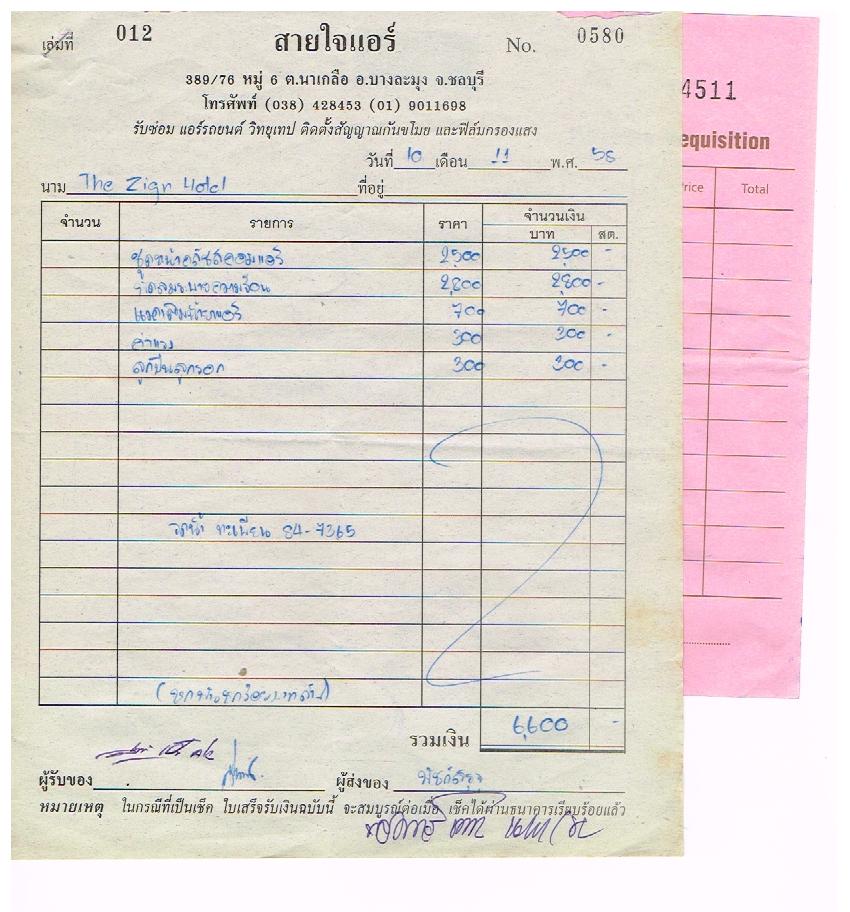 เล่มที่ 012
สายใจแอร์
No. 0580
389/76 หมู่ 6 ต.นาเกลือ อ.บางละมุง จ.ชลบุรี
โทรศัพท์ (038) 428453 (01) 9011698
รับซ่อม แอร์รถยนต์ วิทยุเทป ติดตั้งสัญญาณกันขโมย และฟิล์มกรองแสง
วันที่ 10 เดือน 11 พ.ศ. 58
นาม The Zign Hotel ที่อยู่
จำนวน รายการ ราคา จำนวนเงิน
บาท สต.
ชุดหน้าคลัชคอมแอร์ 2,500 2,500 -
2,800 2,800 -
700 700 -
ค่าแรง 300 300 -
ลูกปืนลูกรอก 300 300 -
ทะเบียน 84-7365
(หกพันหกร้อยบาทถ้วน)
รวมเงิน 6,600 -
ผู้รับของ ผู้ส่งของ
หมายเหตุ ในกรณีที่เป็นเช็ค ใบเสร็จรับเงินฉบับนี้ จะสมบูรณ์ต่อเมื่อ เช็คได้ผ่านธนาคารเรียบร้อยแล้ว
4511
equisition
rice Total